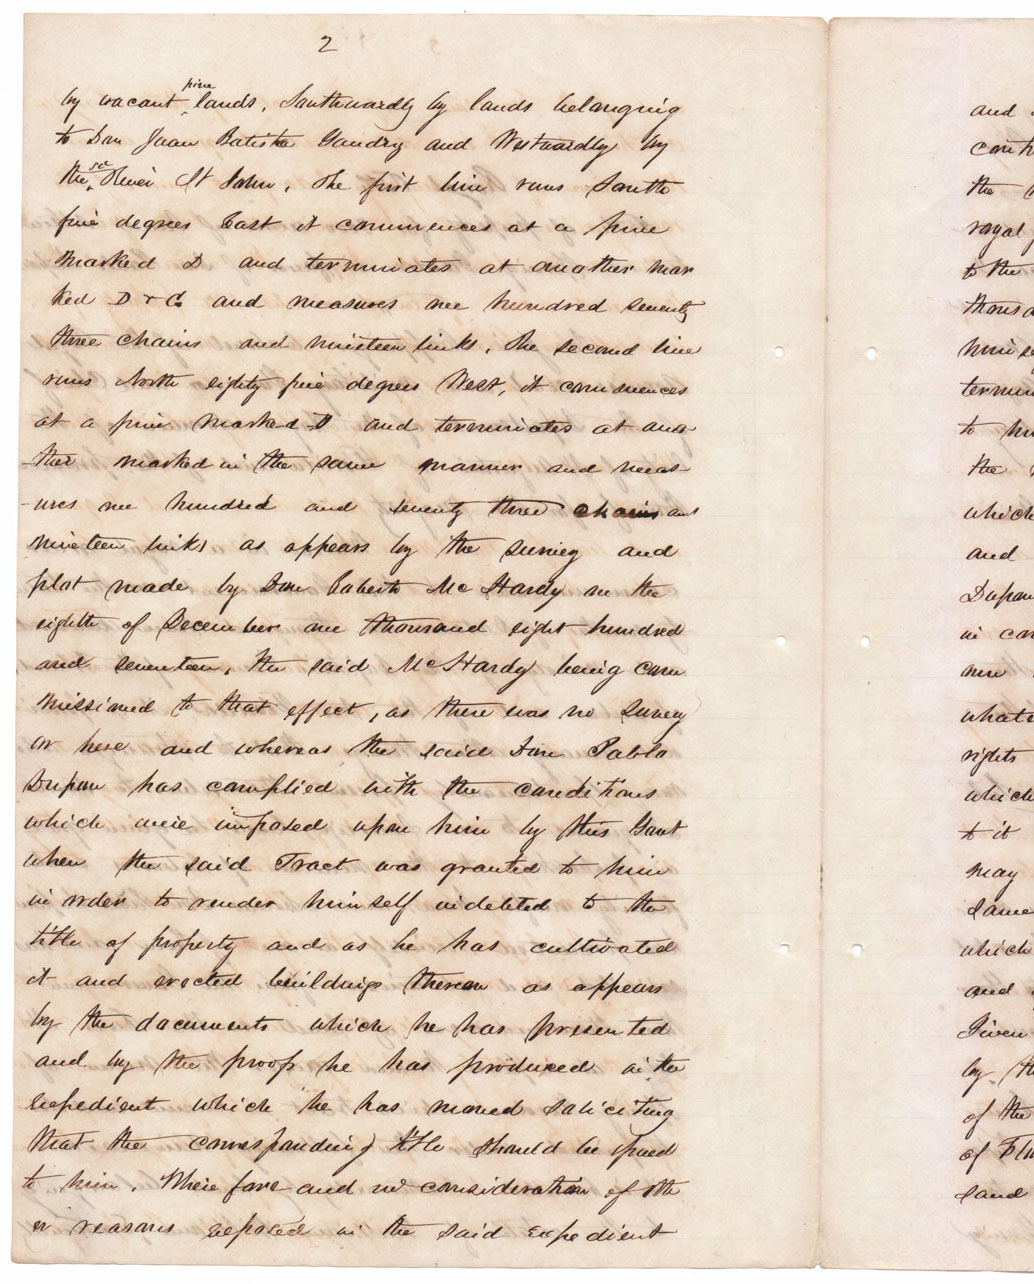 2
by vacant pine lands, Southwardly by lands belonging
to Don Juan Batista Gaudry and Westwardly by
the sd River St John, The first line runs South
five degrees East it commences at a pine
marked D and terminates at another mar
ked D & G and measures one hundred seventy
three chains and nineteen links, The second line
runs North eighty five degrees West, it commences
at a pine marked D and terminates at ano-
-ther marked in the same manner and meas-
-ures one hundred and seventy three chains and
nineteen links as appears by the survey and
plat made by Don Roberto Mc Hardy on the
eighth of December one thousand eight hundred
and seventeen, the said McHardy being com
missioned to that effect, as there was no survey
or here and whereas the said Don Pablo
Dupon has complied with the conditions
which were imposed upon him by this Govt
when the said Tract was granted to him
in order to render himself indebted to the
title of property and as he has cultivated
it and erected buildings thereon as appears
by the documents which he has presented
and by the proofs he has produced in the
expedient which he has moved soliciting
that the corresponding title should be issued
to him. Where fore and in consideration of oth
er reasons exposed in the said Expedient
and
the
royal
to the
terminu
to
the
which
and
in con
rights
which
to it
may
same
which
and
Given
by th
of the
of Fl
Land